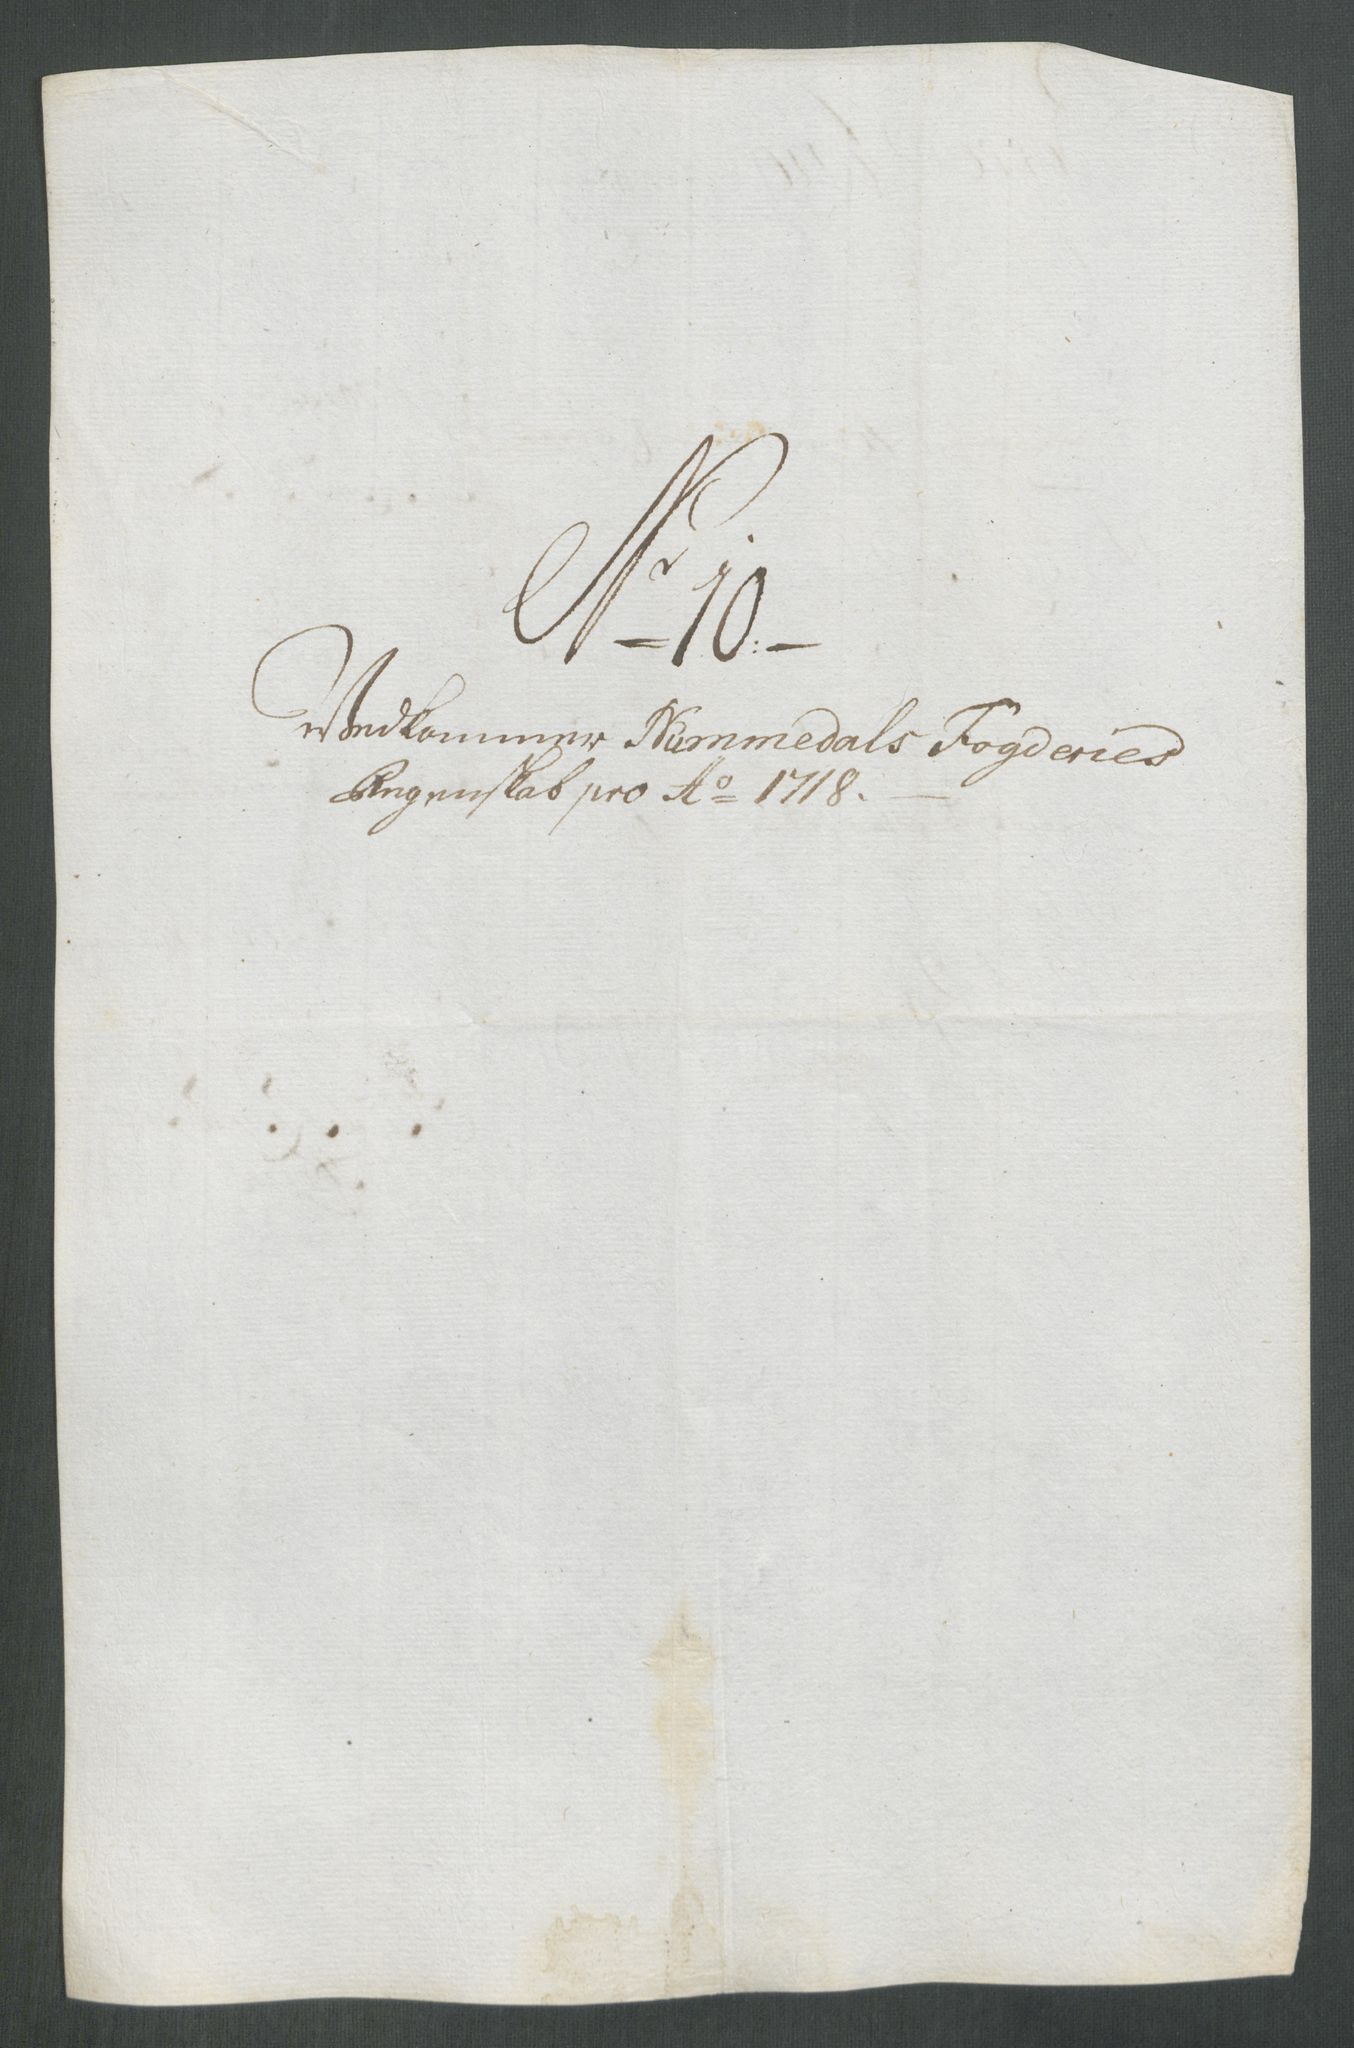 Nr 10:
Wedkommer Nummedals Fogderies
Regenskab pro Ao 1718.